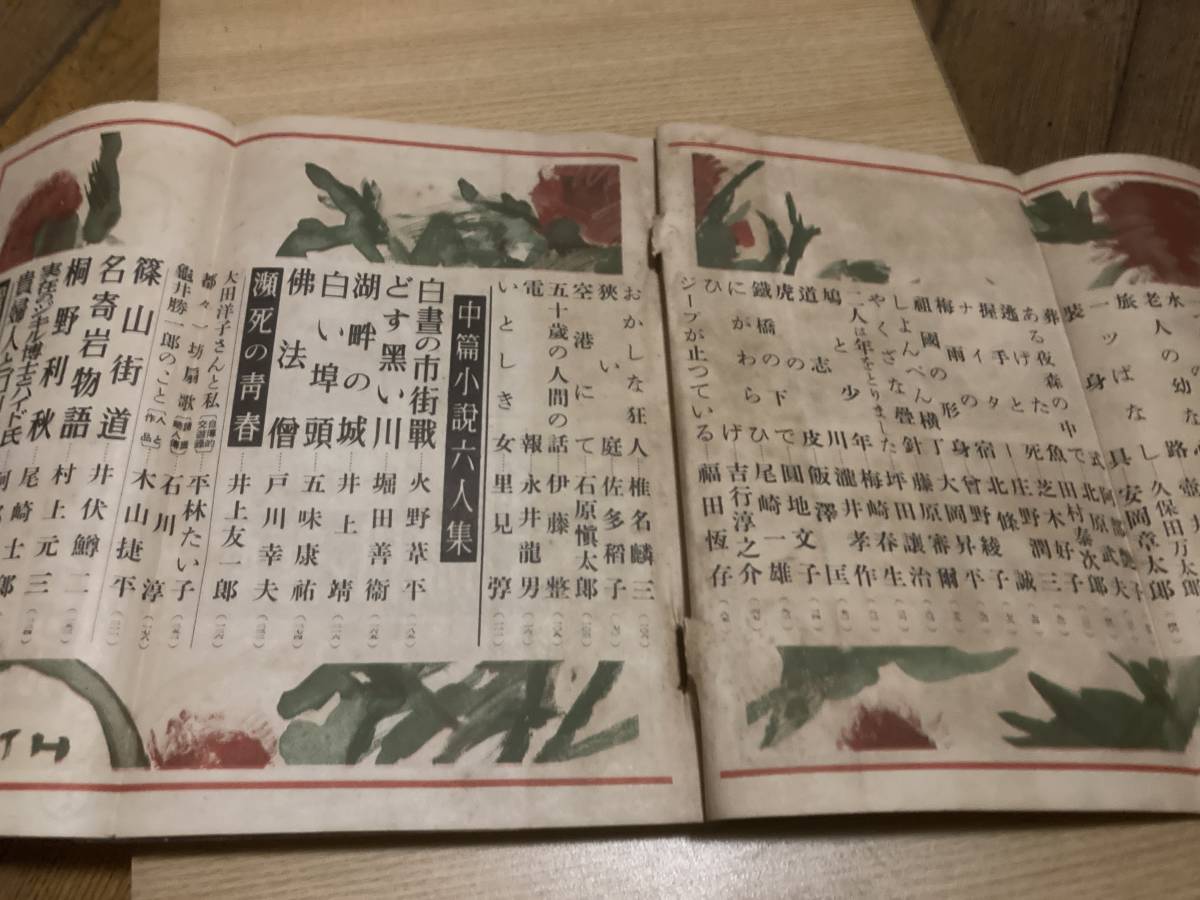 老人の幼な心 壺
一ツの路 久保田万太郎
旅ッぱなし 安岡章太郎
一身具
装
葬 北原武夫
ある夜森の中で 田村泰次郎
あげた魚 芝木好子
逃と死 庄野潤三
握手
ナイター
梅雨の宿 北條誠
祖國の形身 曾野綾子
しよんぺん横丁 大岡昇平
やくざな聲 藤原審爾
二人は年をとりました 坪田讓治
鳩と少年 梅崎春生
道志川 瀧井孝作
虎の皮 飯澤匡
鐵橋の下で 圓地文子
にがわらひ 尾崎一雄
ひげ 吉行淳之介
ジープが止つている 福田恆存
おかしな狂人 椎名麟三
狹い庭 佐多稻子
空港にて 石原愼太郎
五十歳の人間の話 伊藤整
電報 永井龍男
いとしき女 里見弴
中篇小説六人集
白晝の市街戰 火野葦平
どす黒い川 堀田善衞
湖畔の城 井上靖
白い埠頭 五味康祐
佛法僧 戸川幸夫
瀕死の青春 井上友一郎
大田洋子さんと私 平林たい子
都々一坊扇歌 石川淳
龜井勝一郎のこと 木山捷平
篠山街道 井伏鱒二
名寄岩物語 村上元三
桐野利秋 尾崎士郎
実在のジキル博士とハイド氏
貴婦人と
TH